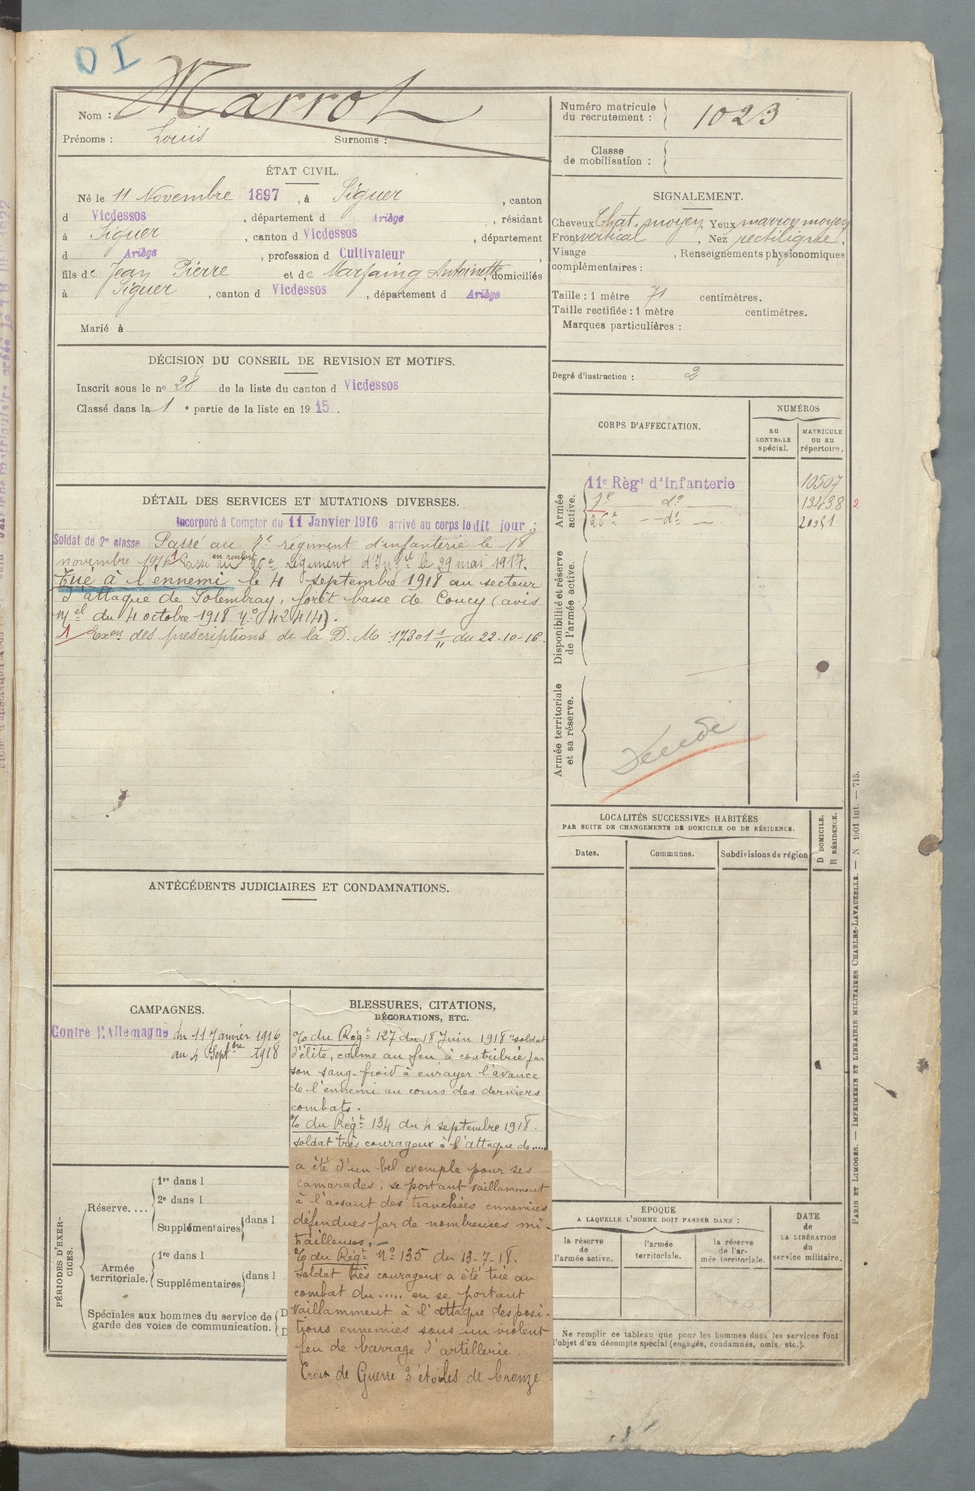 D I
Nom : Marrot
Prénoms : Louis Surnoms :
Numéro matricule du recrutement : 1023
Classe de mobilisation :
ÉTAT CIVIL.
Né le 11 Novembre 1897, à Siguer, canton
d Vicdessos, département d Ariège, résidant
à Siguer, canton d Vicdessos, département
d Ariège, profession d Cultivateur,
fils de Jean Pierre et de Marfaing Antoinette, domiciliés
à Siguer, canton d Vicdessos, département d Ariège
Marié à
SIGNALEMENT.
Cheveux Chat. moyen, Yeux marron moyen
Front vertical, Nez rectiligne.
Visage , Renseignements physionomiques
complémentaires :
Taille : 1 mètre 71 centimètres.
Taille rectifiée : 1 mètre centimètres.
Marques particulières :
Degré d'instruction : 2
DÉCISION DU CONSEIL DE REVISION ET MOTIFS.
Inscrit sous le no 28 de la liste du canton d Vicdessos
Classé dans la 1 e partie de la liste en 1915.
CORPS D'AFFECTATION.
NUMÉROS
au CONTROLE spécial.
MATRICULE ou au répertoire.
Armée active.
11e Règt d'Infanterie 10507
7e do 13438 2
26e do
Disponibilité et réserve de l'armée active.
Armée territoriale et sa réserve.
DÉTAIL DES SERVICES ET MUTATIONS DIVERSES.
Incorporé à Compter du 11 Janvier 1916 arrivé au corps le dit jour ;
Soldat de 2e classe Passé au 7e régiment d'infanterie le 18
novembre 1916 1 Passé en renfort au 26e régiment d'Infie le 29 mai 1917.
Tué à l'ennemi le 4 septembre 1918 au secteur
d'attaque de Folembray, forêt basse de Coucy (avis
Mel du 4 octobre 1918 No
1 Exon des prescriptions de la D. M. 17301 1/11 du 22-10-16.
LOCALITÉS SUCCESSIVES HABITÉES
PAR SUITE DE CHANGEMENTS DE DOMICILE OU DE RÉSIDENCE.
Dates. Communes. Subdivisions de région
D DOMICILE. R RÉSIDENCE.
ANTÉCÉDENTS JUDICIAIRES ET CONDAMNATIONS.
CAMPAGNES.
Contre l'Allemagne du 11 Janvier 1916
au 4 Septbre 1918
BLESSURES, CITATIONS,
DÉCORATIONS, ETC.
% du Régt 127 du 18 Juin 1918 "soldat
d'élite, calme au feu, à contribué par
son sang-froid à enrayer l'avance
de l'ennemi au cours des derniers
combats.
% du Régt 134 du 4 septembre 1918.
soldat très courageux à l'attaque de....
a été d'un bel exemple pour ses
camarades, se portant vaillamment
à l'assaut des tranchées ennemies
défendues par de nombreuses mi-
trailleuses. -
% du Régt No 135 du 13-7-18.
Soldat très courageux a été tué au
combat du ..... en se portant
vaillamment à l'attaque des posi-
tions ennemies sous un violent
feu de barrage d'artillerie.
Croix de Guerre 3 étoiles de bronze
PÉRIODES D'EXERCICES.
Réserve....
1re dans l
2e dans l
Supplémentaires dans l
Armée territoriale.
1re dans l
Supplémentaires dans l
Spéciales aux hommes du service de
garde des voies de communication.
ÉPOQUE
A LAQUELLE L'HOMME DOIT PASSER DANS :
la réserve de l'armée active.
l'armée territoriale.
la réserve de l'armée territoriale.
DATE de LA LIBÉRATION du service militaire.
Ne remplir ce tableau que pour les hommes dont les services font
l'objet d'un décompte spécial (engagés, condamnés, omis, etc.).
PARIS ET LIMOGES. — IMPRIMERIE ET LIBRAIRIE MILITAIRES CHARLES-LAVAUZELLE. — N 1001 int. — 715.